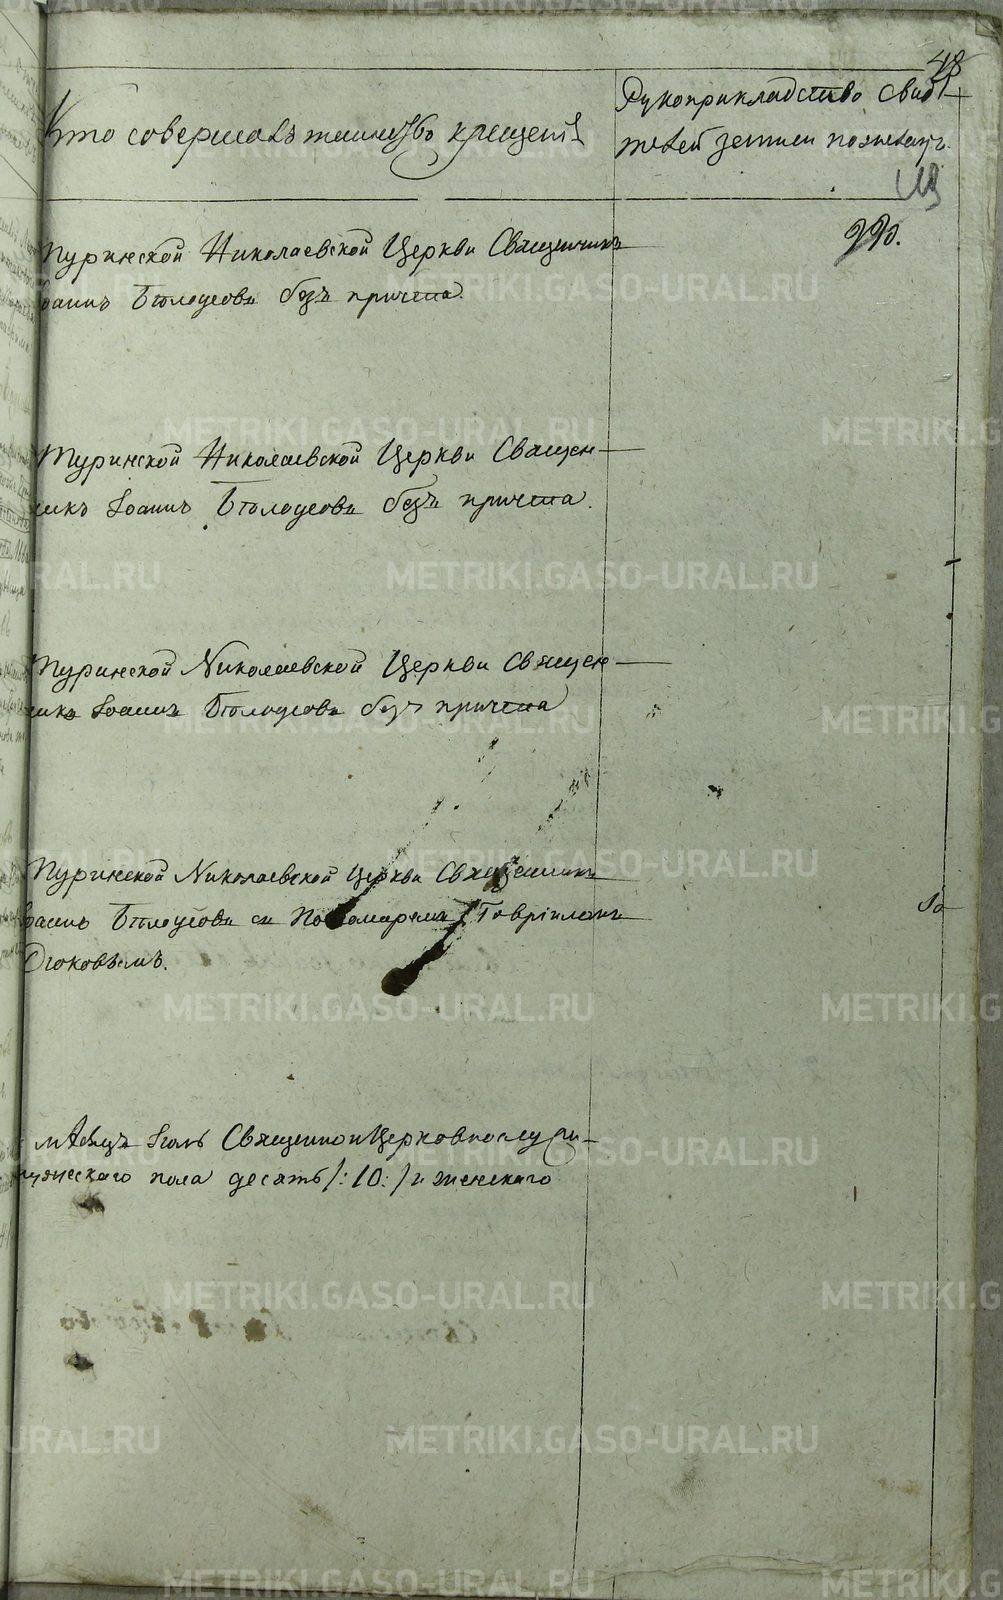 48
Кто совершалъ таинство крещенія
Рукоприкладство свидѣ-
телей записи по желанію
990.
Туринской Николаевской Церкви Священникъ
Іоаннъ Бѣлоусовъ безъ причта.
Туринской Николаевской Церкви Священ-
никъ Іоаннъ Бѣлоусовъ безъ причта.
Туринской Николаевской Церкви Священ-
никъ Іоаннъ Бѣлоусовъ безъ причта
Туринской Николаевской Церкви Священникъ
Іоаннъ Бѣлоусовъ съ Пономаремъ Гавріиломъ
мѣсяцъ Іюль Священноицерковнослужи-
мужескаго пола десять /:10:/ и женскаго
METRIKI.GASO-URAL.RU